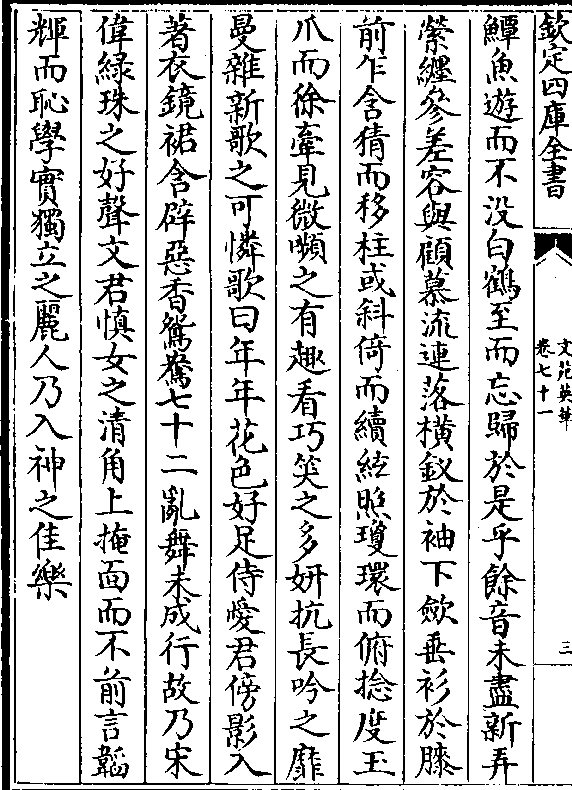 欽定四庫全書
文苑英華
卷七十一
三
鱏魚遊而不没白鶴至而忘歸於是乎餘音未盡新弄
縈纏參差容與顧慕流連落橫釵於袖下歛垂衫於膝
前乍含猜而移柱或斜倚而續絃照瓊環而俯捻度玉
爪而徐牽見微嚬之有趣看巧笑之多妍抗長吟之靡
曼雜新歌之可憐歌曰年年花色好足侍愛君傍影入
著衣鏡裙含辟惡香鴛鴦七十二亂舞未成行故乃宋
偉緑珠之好聲文君慎女之清角上掩面而不前言韜
輝而恥學實獨立之麗人乃入神之佳樂